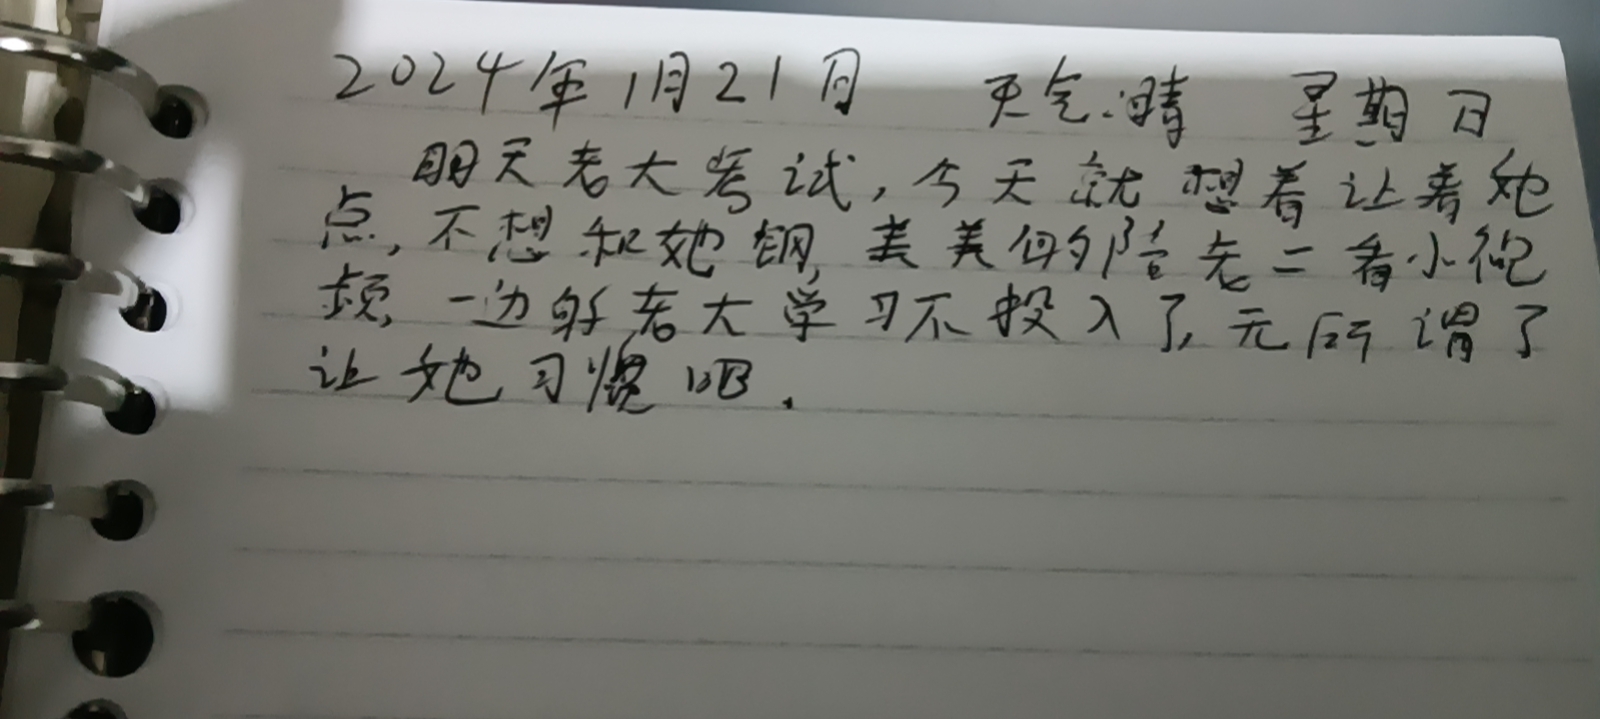 2024年1月21日 天气:晴 星期日
明天老大考试,今天就想着让着她
点,不想和她钢,美美的陪老二看小视
频,一边的老大学习不投入了,无所谓了
让她习惯吧.